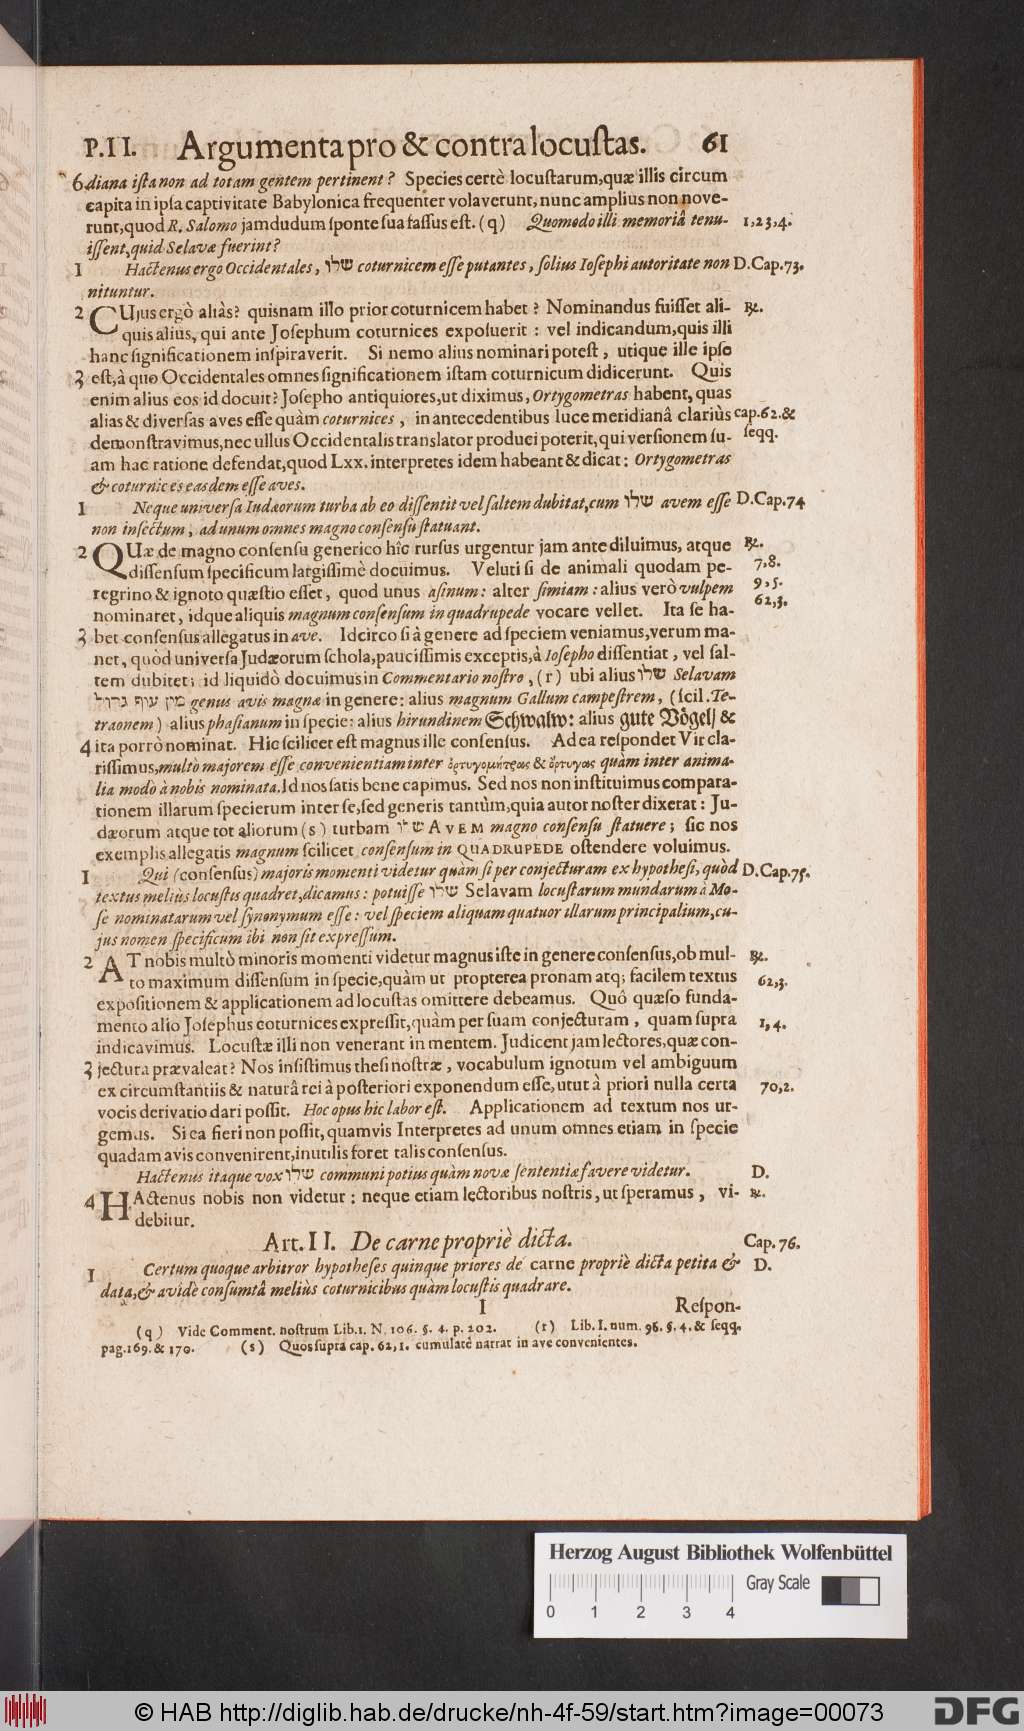 P.II. Argumenta pro & contra locustas. 61
6 diana ista non ad totam gentem pertinent? Species certè locustarum, quæ illis circum
capita in ipsa captivitate Babylonica frequenter volaverunt, nunc amplius non nove-
runt, quod R. Salomo jamdudum sponte sua fassus est. (q) Quomodo illi memoriâ tenu- 1,23,4.
issent, quid Selavæ fuerint?
1 Hactenus ergo Occidentales, שלו coturnicem esse putantes, solius Iosephi autoritate non D. Cap. 73.
nituntur.
2 CUjus ergò aliàs? quisnam illo prior coturnicem habet? Nominandus fuisset ali- ꝶ.
quis alius, qui ante Josephum coturnices exposuerit: vel indicandum, quis illi
hanc significationem inspiraverit. Si nemo alius nominari potest, utique ille ipse
3 est, à quo Occidentales omnes significationem istam coturnicum didicerunt. Quis
enim alius eos id docuit? Josepho antiquiores, ut diximus, Ortygometras habent, quas
alias & diversas aves esse quàm coturnices, in antecedentibus luce meridianâ clariùs cap. 62. &
demonstravimus, nec ullus Occidentalis translator produci poterit, qui versionem su- seqq.
am hac ratione defendat, quod Lxx. interpretes idem habeant & dicat: Ortygometras
& coturnices easdem esse aves.
1 Neque universa Iudæorum turba ab eo dissentit vel saltem dubitat, cum שלו avem esse D. Cap. 74
non insectum, ad unum omnes magno consensu statuant.
2 QUæ de magno consensu generico hîc rursus urgentur jam ante diluimus, atque ꝶ.
dissensum specificum largissimè docuimus. Veluti si de animali quodam pe- 7,8.
regrino & ignoto quæstio esset, quod unus asinum: alter simiam: alius verò vulpem 9,5.
nominaret, idque aliquis magnum consensum in quadrupede vocare vellet. Ita se ha- 62,3.
3 bet consensus allegatus in ave. Idcirco si à genere ad speciem veniamus, verum ma-
net, quòd universa Judæorum schola, paucissimis exceptis, à Iosepho dissentiat, vel sal-
tem dubitet; id liquidò docuimus in Commentario nostro, (r) ubi alius שלו Selavam
מין עוף גדול genus avis magnæ in genere: alius magnum Gallum campestrem, (scil. Te-
traonem) alius phasianum in specie: alius hirundinem Schwalw: alius gute Vögelj &
4 ita porrò nominat. Hic scilicet est magnus ille consensus. Ad ea respondet Vir cla-
rissimus, multò majorem esse convenientiam inter ὀρτυγομήτρας & ὄρτυγας quàm inter anima-
lia modò à nobis nominata. Id nos satis bene capimus. Sed nos non instituimus compara-
tionem illarum specierum inter se, sed generis tantùm, quia autor noster dixerat: Ju-
dæorum atque tot aliorum (s) turbam שלו AVEM magno consensu statuere; sic nos
exemplis allegatis magnum scilicet consensum in QUADRUPEDE ostendere voluimus.
1 Qui (consensus) majoris momenti videtur quàm si per conjecturam ex hypothesi, quòd D. Cap. 75.
textus meliùs locustis quadret, dicamus: potuisse שלו Selavam locustarum mundarum à Mo-
se nominatarum vel synonymum esse: vel speciem aliquam quatuor illarum principalium, cu-
jus nomen specificum ibi non sit expressum.
2 AT nobis multò minoris momenti videtur magnus iste in genere consensus, ob mul- ꝶ.
to maximum dissensum in specie, quàm ut propterea pronam atq; facilem textus 62,3.
expositionem & applicationem ad locustas omittere debeamus. Quô quæso funda-
mento alio Josephus coturnices expressit, quàm per suam conjecturam, quam supra 1,4.
indicavimus. Locustæ illi non venerant in mentem. Judicent jam lectores, quæ con-
3 jectura prævaleat? Nos insistimus thesi nostræ, vocabulum ignotum vel ambiguum
ex circumstantiis & naturâ rei à posteriori exponendum esse, utut à priori nulla certa 70,2.
vocis derivatio dari possit. Hoc opus hic labor est. Applicationem ad textum nos ur-
gemus. Si ea fieri non possit, quamvis Interpretes ad unum omnes etiam in specie
quadam avis convenirent, inutilis foret talis consensus.
Hactenus itaque vox שלו communi potius quàm novæ sententiæ favere videtur. D.
4 HActenus nobis non videtur: neque etiam lectoribus nostris, ut speramus, vi- ꝶ.
debitur.
Art. II. De carne propriè dicta. Cap. 76.
1 Certum quoque arbitror hypotheses quinque priores de carne propriè dicta petita & D.
data, & avidè consumtâ meliùs coturnicibus quàm locustis quadrare.
I Respon-
(q) Vide Comment. nostrum Lib. 1. N. 106. §. 4. p. 202. (r) Lib. I. num. 96. §. 4. & seqq.
pag. 169. & 170. (s) Quos supra cap. 62, 1. cumulatè narrat in ave convenientes.
Herzog August Bibliothek Wolfenbüttel
Gray Scale
0 1 2 3 4
© HAB http://diglib.hab.de/drucke/nh-4f-59/start.htm?image=00073
DFG